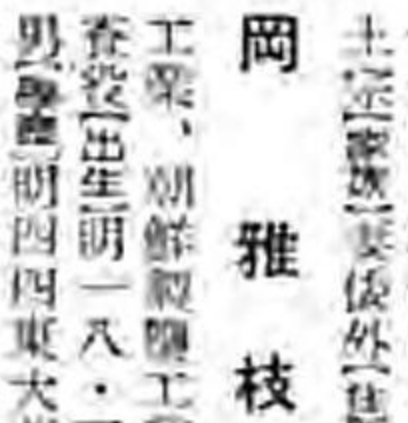 土、宗【家族】妻俊外【住
岡雅枝
工業、朝鮮製鹽工
査役【出生】明一八・
男【學歷】明四四東大